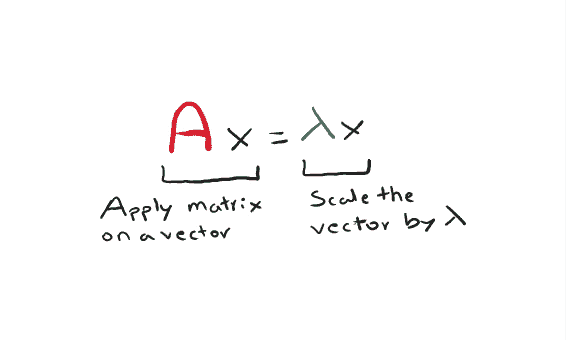 Ax = λx
Apply matrix
on a vector
Scale the
vector by λ